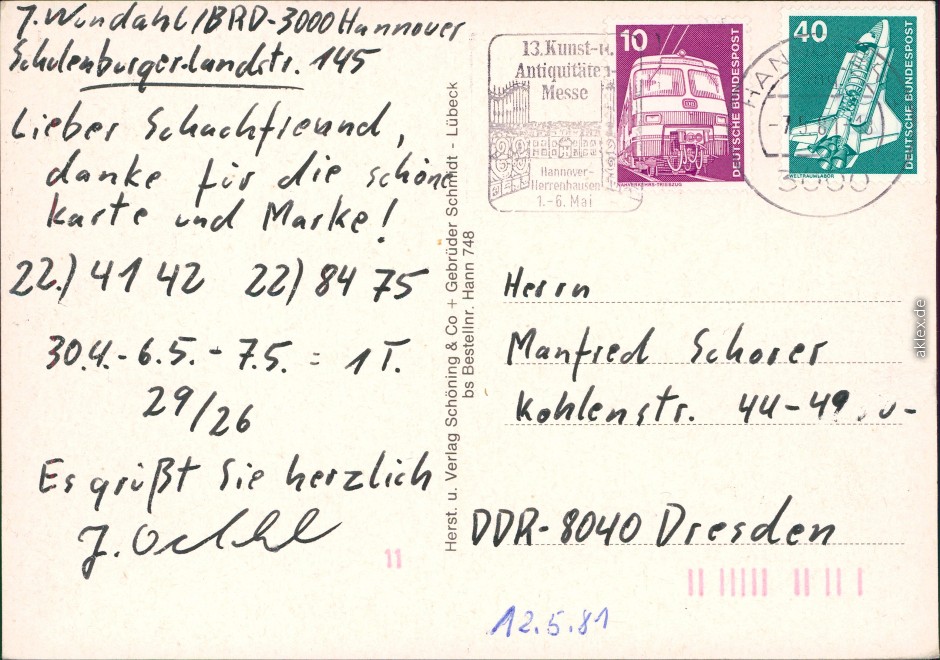 J. Wondahl / BRD-3000 Hannover
Schulenburger Landstr. 145
Lieber Schachfreund,
danke für die schöne
Karte und Marke!
22.) 41 42 22) 84 75
30.4.-6.5. - 7.5. = 1 T.
29/26
Es grüßt Sie herzlich
J.
11
Herst. u. Verlag Schöning & Co + Gebrüder Schmidt - Lübeck
bs Bestellnr. Hann 748
13. Kunst- u.
Antiquitäten-
Messe
Hannover-
Herrenhausen
1.-6. Mai
10
DEUTSCHE BUNDESPOST
NAHVERKEHRS-TRIEBZUG
40
DEUTSCHE BUNDESPOST
WELTRAUMLABOR
HAN
3000
Herrn
Manfred Schorer
Kohlenstr. 44-49
DDR-8040 Dresden
12.5.81
aklex.de